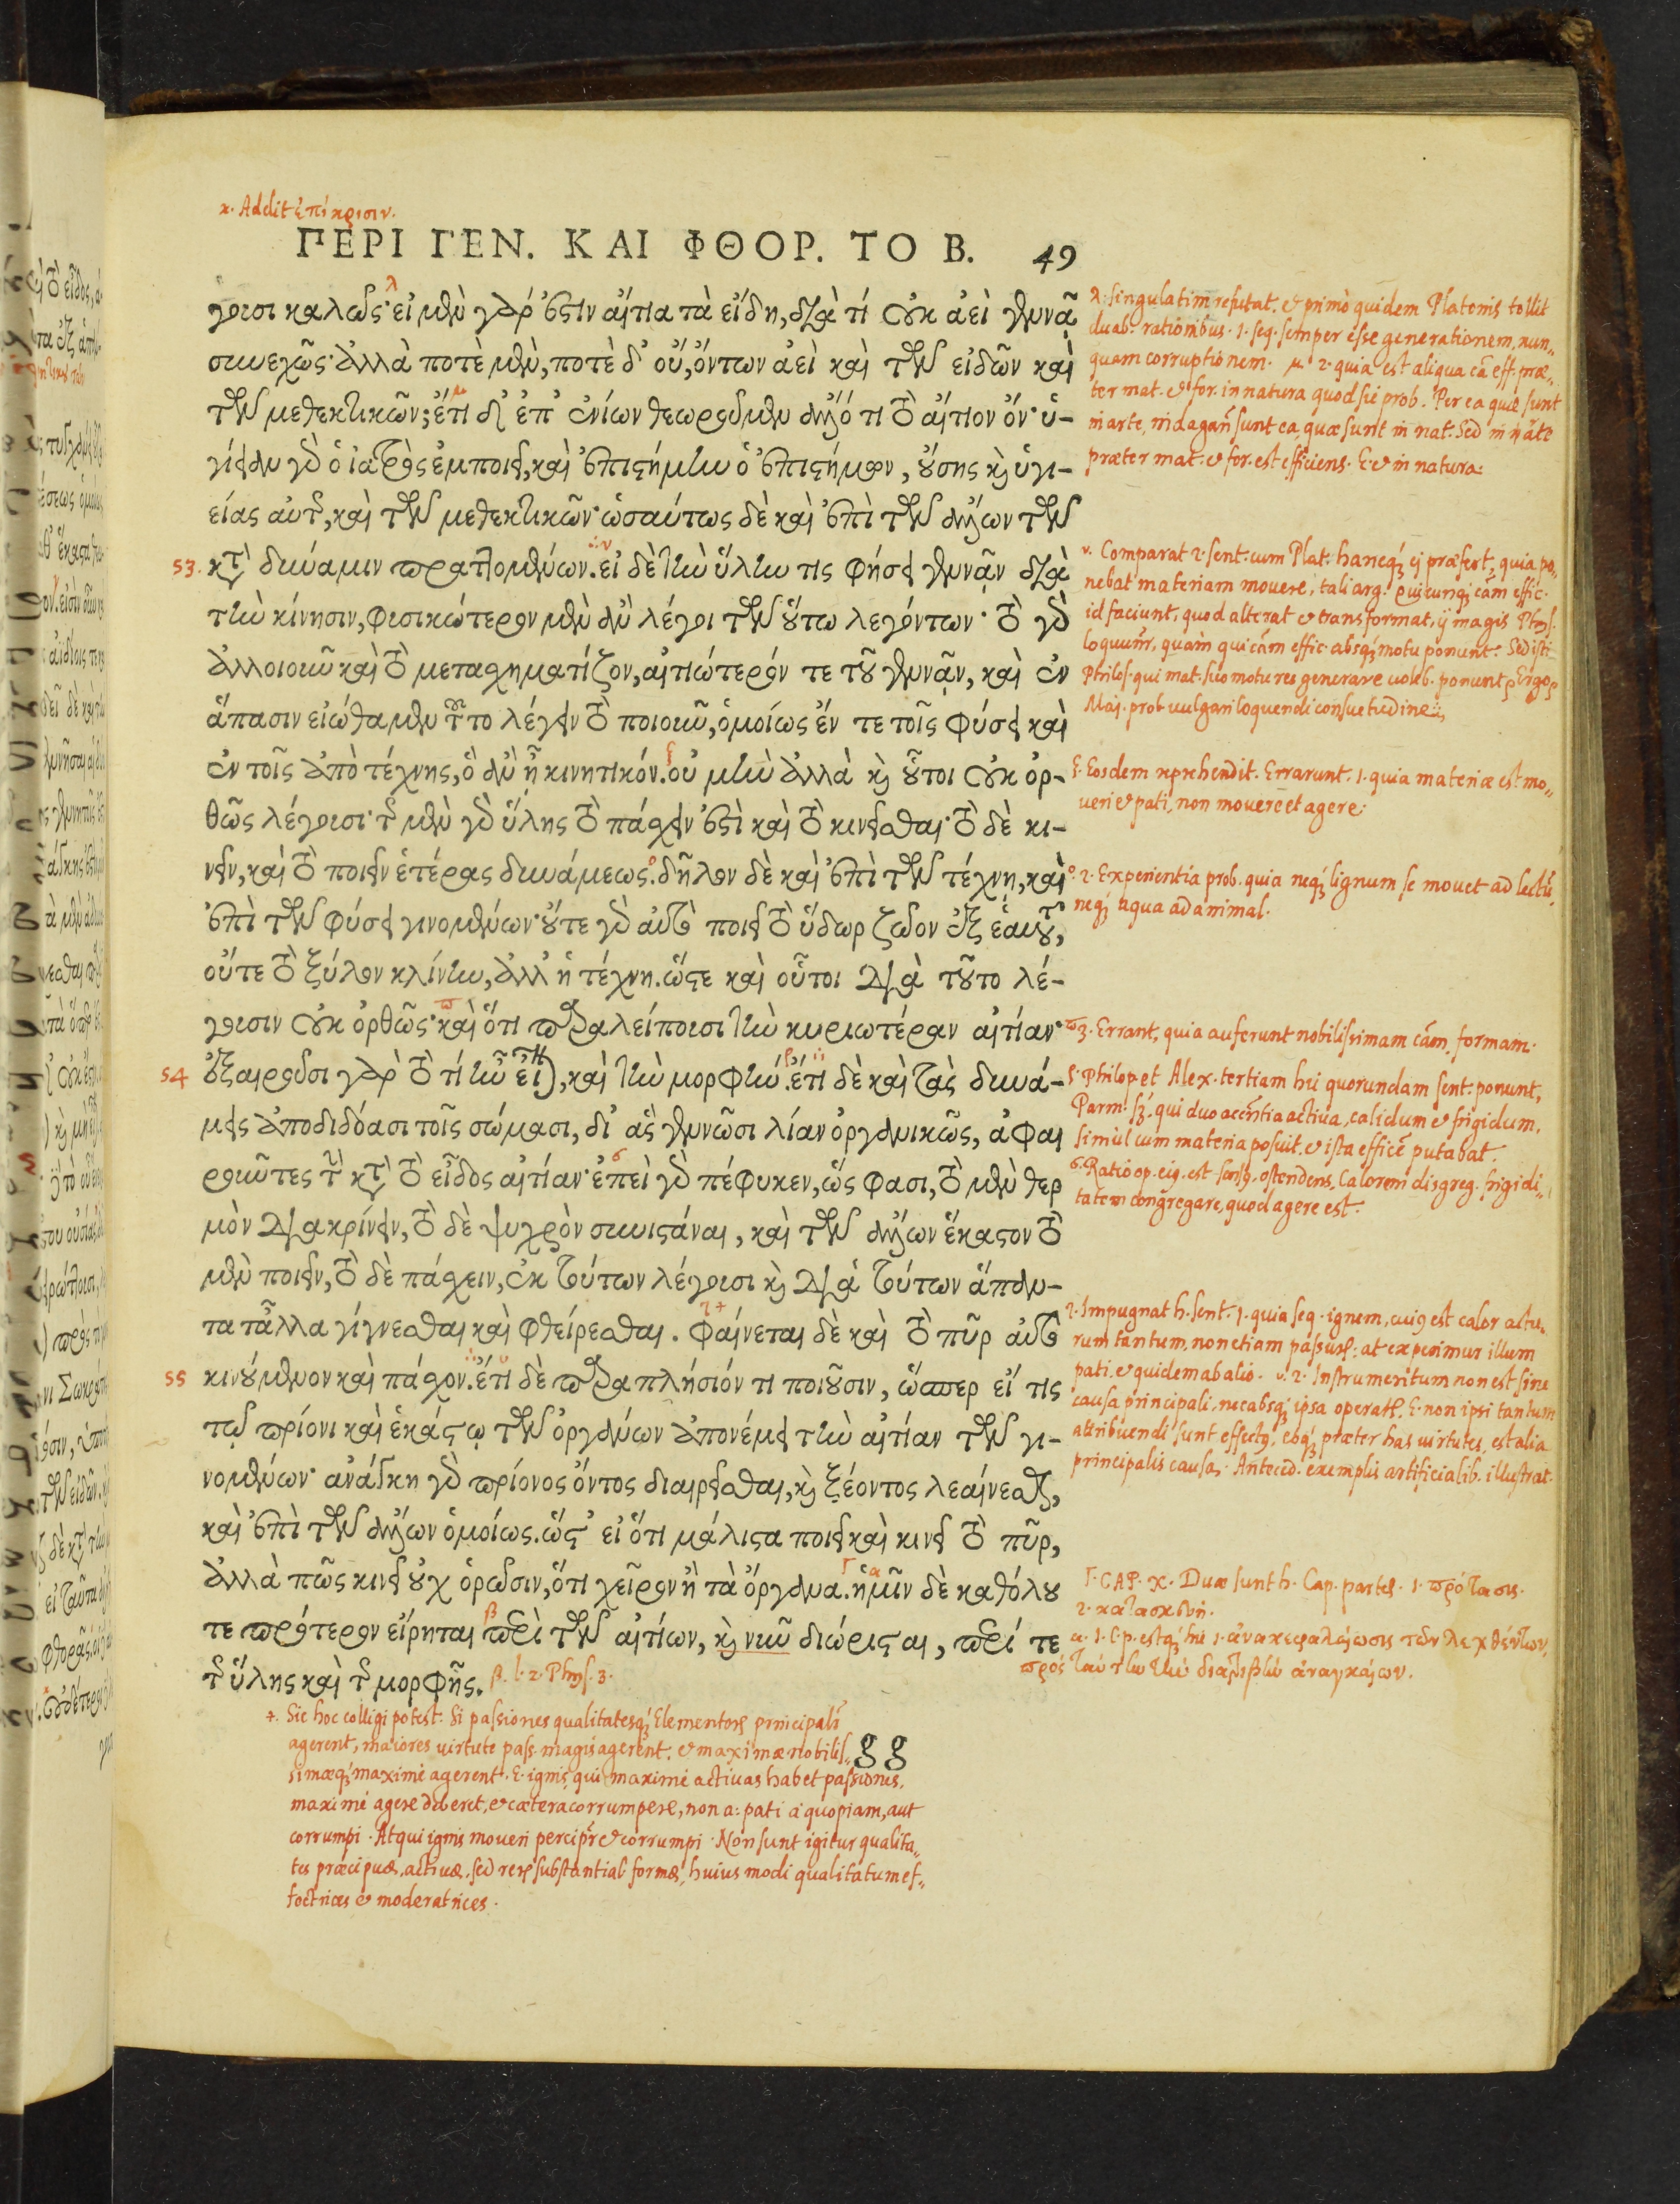 κ. Addit ἐπίκρισιν.
ΠΕΡΙ ΓΕΝ. ΚΑΙ ΦΘΟΡ. ΤΟ Β. 49
γουσι καλῶς· εἰ μὲν γάρ ἐστιν αἴτια τὰ εἴδη, διὰ τί οὐκ ἀεὶ γεννᾷ
συνεχῶς· ἀλλὰ ποτὲ μὲν, ποτὲ δ' οὔ, ὄντων ἀεὶ καὶ τῶν εἰδῶν καὶ
τῶν μεθεκτικῶν; ἔτι δ' ἐπ' ἐνίων θεωροῦμεν ἄλλό τι τὸ αἴτιον ὄν· ὑ-
γίειαν γὰρ ὁ ἰατρὸς ἐμποιεῖ, καὶ ἐπιστήμην ὁ ἐπιστήμων, οὔσης καὶ ὑγι-
είας αὐτῆς, καὶ τῶν μεθεκτικῶν· ὡσαύτως δὲ καὶ ἐπὶ τῶν ἄλλων τῶν
53. κατὰ δύναμιν πραττομένων. εἰ δὲ τὴν ὕλην τις φήσει γεννᾷν διὰ
τὴν κίνησιν, φυσικώτερον μὲν ἂν λέγοι τῶν οὕτω λεγόντων· τὸ γὰρ
ἀλλοιοῦν καὶ τὸ μετασχηματίζον, αἰτιώτερόν τε τοῦ γεννᾷν, καὶ ἐν
ἅπασιν εἰώθαμεν τοῦτο λέγειν τὸ ποιοῦν, ὁμοίως ἔν τε τοῖς φύσει καὶ
ἐν τοῖς ἀπὸ τέχνης, ὃ ἂν ᾖ κινητικόν. οὐ μὴν ἀλλὰ καὶ οὗτοι οὐκ ὀρ-
θῶς λέγουσι· τῆς μὲν γὰρ ὕλης τὸ πάσχειν ἐστὶ καὶ τὸ κινεῖσθαι· τὸ δὲ κι-
νεῖν, καὶ τὸ ποιεῖν ἑτέρας δυνάμεως. δῆλον δὲ καὶ ἐπὶ τῶν τέχνῃ, καὶ
ἐπὶ τῶν φύσει γινομένων· οὔτε γὰρ αὐτὸ ποιεῖ τὸ ὕδωρ ζῶον ἐξ ἑαυτοῦ,
οὔτε τὸ ξύλον κλίνην, ἀλλ' ἡ τέχνη. ὥστε καὶ οὗτοι διὰ τοῦτο λέ-
γουσιν οὐκ ὀρθῶς· καὶ ὅτι παραλείπουσι τὴν κυριωτέραν αἰτίαν·
54 ἐξαιροῦσι γὰρ τὸ τί ἦν εἶναι, καὶ τὴν μορφήν. ἔτι δὲ καὶ τὰς δυνά-
μεις ἀποδιδόασι τοῖς σώμασι, δι' ἃς γεννῶσι λίαν ὀργανικῶς, ἀφαι
ροῦντες τὴν κατὰ τὸ εἶδος αἰτίαν· ἐπεὶ γὰρ πέφυκεν, ὥς φασι, τὸ μὲν θερ
μὸν διακρίνειν, τὸ δὲ ψυχρὸν συνιστάναι, καὶ τῶν ἄλλων ἕκαστον τὸ
μὲν ποιεῖν, τὸ δὲ πάσχειν, ἐκ τούτων λέγουσι καὶ διὰ τούτων ἅπαν-
τα τἆλλα γίγνεσθαι καὶ φθείρεσθαι. Φαίνεται δὲ καὶ τὸ πῦρ αὐτὸ
55 κινούμενον καὶ πάσχον. ἔτι δὲ παραπλήσιόν τι ποιοῦσιν, ὥσπερ εἴ τις
τῷ πρίονι καὶ ἑκάστῳ τῶν ὀργάνων ἀπονέμει τὴν αἰτίαν τῶν γι-
νομένων· ἀνάγκη γὰρ πρίονος ὄντος διαιρεῖσθαι, καὶ ξέοντος λεαίνεσθαι,
καὶ ἐπὶ τῶν ἄλλων ὁμοίως. ὥστ' εἰ ὅτι μάλιστα ποιεῖ καὶ κινεῖ τὸ πῦρ,
ἀλλὰ πῶς κινεῖ οὐχ ὁρῶσιν, ὅτι χεῖρον ἢ τὰ ὄργανα. ἡμῖν δὲ καθόλου
τε πρότερον εἴρηται περὶ τῶν αἰτίων, καὶ νῦν διώρισται, περί τε
τῆς ὕλης καὶ τῆς μορφῆς. β. l. 2. Phys. 3.
gg
λ. singulatim refutat. & primò quidem Platonis tollit
duab. rationibus. 1. seq. semper esse generationem, nun,,
quam corruptionem. μ. 2. quia est aliqua cã eff. præ,,
ter mat. & for. in natura quod sic prob. Per ea quæ sunt
in arte, indagañ sunt ea, quæ sunt in nat. Sed in arte
præter mat. & for. est efficiens. E. & in natura.
ν. Comparat 2. sent. cum Plat. hancq; ei præfert, quia po,,
nebat materiam movere, tali arg. Quicunq; cãm effic.
id faciunt, quod alterat & transformat, ij magis Phys.
loquunr, quàm qui cãm effic. absq; motu ponunt. Sed isti
Philos. qui mat. suo motu res generare voleb. ponunt Ergo
Maj. prob vulgari loquendi consuetudine.
ξ. Eosdem reprehendit. Errarunt. 1. quia materiæ est mo,,
veri & pati, non movere et agere.
ο. 2. Experientia prob. quia neq; lignum se movet ad lectũ,
neq; aqua ad animal.
π 3. Errant, quia auferunt nobilissimam cãm, formam.
ρ. Philop. et Alex. tertiam hîc quorundam sent. ponunt,
Parm. sz. qui duo accñtia activa, calidum & frigidum,
simul cum materia posuit, & ista efficẽ putabat.
σ. Ratio op. eius est sensus, ostendens, Calorem disgreg. frigidi,,
tatem congregare, quod agere est.
τ. Impugnat h. sent. 1. quia seq. ignem, cuius est calor actu,,
rum tantum, non etiam passurum: at experimur illum
pati, & quidem ab alio. υ. 2. Instrumentum non est sine
causa principali, nec absq; ipsa operatur. E. non ipsi tantum
attribuendi sunt effectus, eoq; præter has virtutes, est alia
principalis causa. Anteced. exemplis artificialib. illustrat.
Γ. CAP. X. Duæ sunt h. Cap. partes. 1. πρότασις.
2. κατασκευή.
α. 1. C. p. estq; hîc 1. ἀνακεφαλαίωσις τῶν λεχθέντων,
πρὸς ταύτην τὴν διατριβὴν ἀναγκαίων.
+. Sic hoc colligi potest. Si passiones qualitatesq; Elementorum principalr
agerent, maiores virtute pass. magis agerent. & maximæ nobilis,,
simæq; maximè agerent. E. ignis, qui maximè activas habet passiones,
maximè agere deberet, & cætera corrumpere, non a: pati à quopiam, aut
corrumpi. Atqui ignis moveri percipr & corrumpi. Non sunt igitur qualita,,
tes præcipuæ, activæ, sed rerum substantial. formæ, huius modi qualitatum ef,,
fectrices & moderatrices.